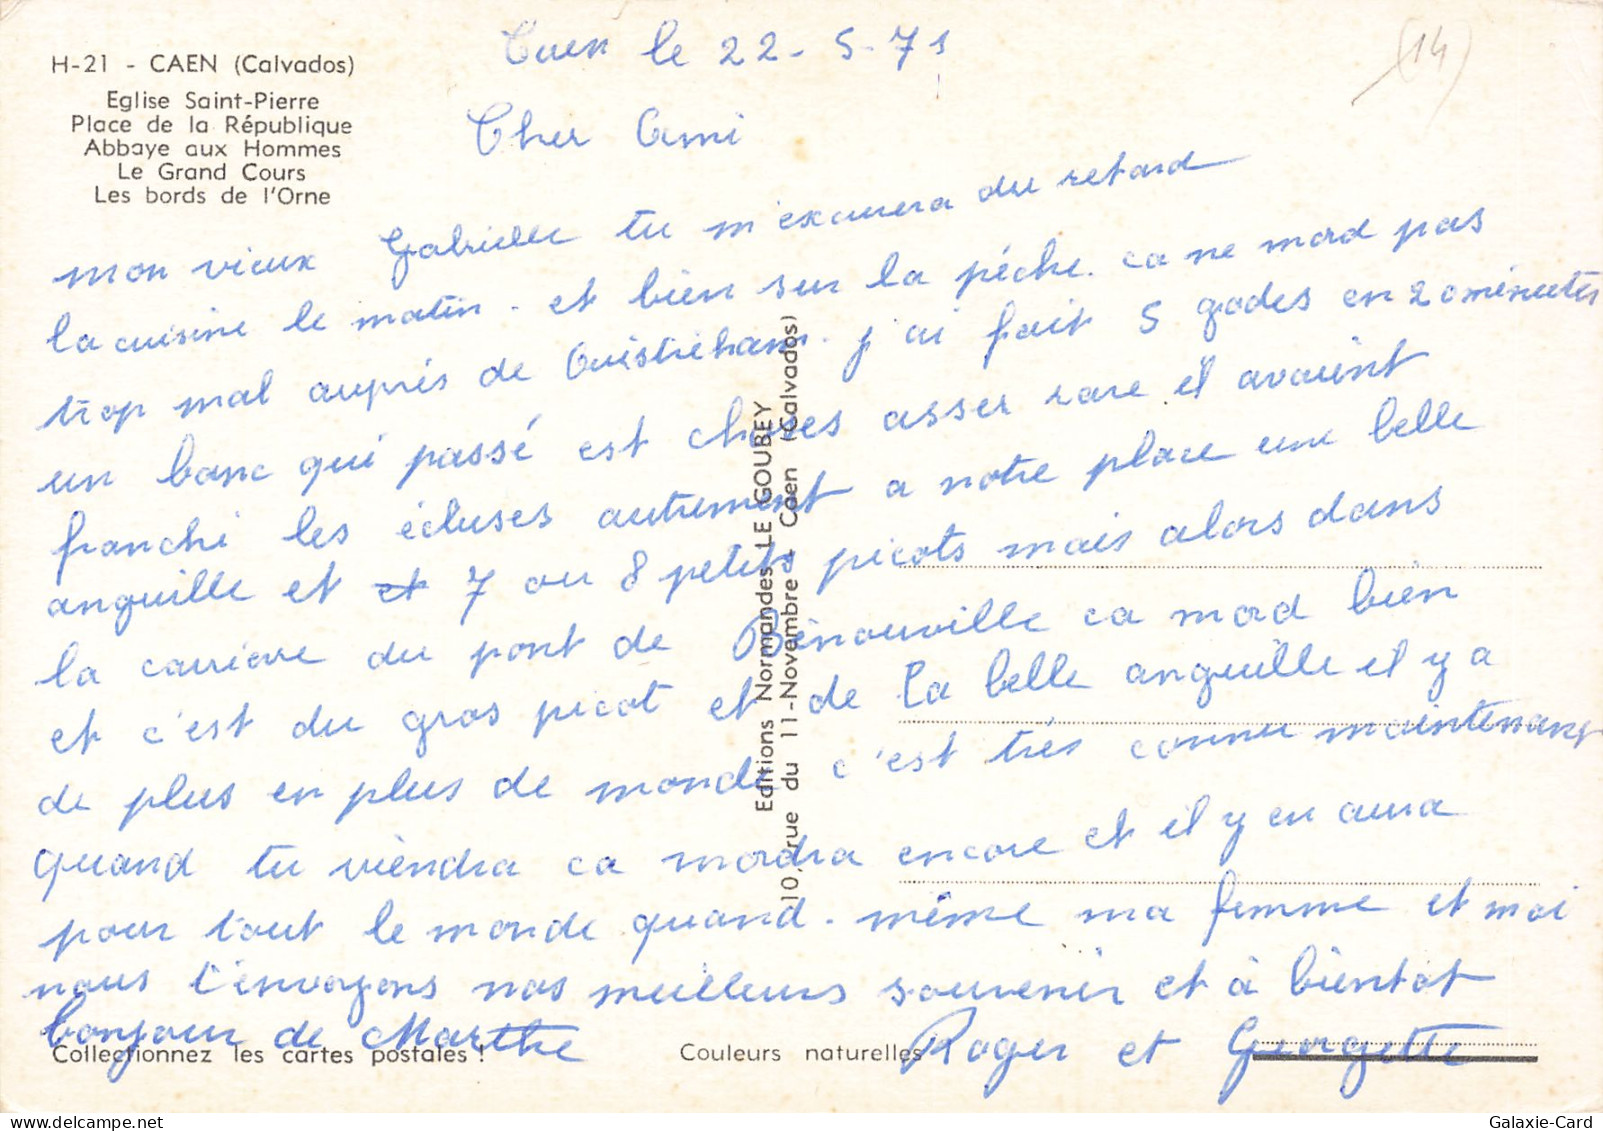 H-21 - CAEN (Calvados)
Eglise Saint-Pierre
Place de la République
Abbaye aux Hommes
Le Grand Cours
Les bords de l'Orne
Caen le 22-5-71
(14)
Cher Ami
mon vieux Gabrielle tu m'excusera du retard
la cuisine le matin. et bien sur la péche. ca ne mord pas
trop mal auprés de Ouistreham. j'ai fait 5 godes en 20 minutes
un banc qui passé est choses asser rare il avaient
franchi les écluses autrement a notre place une belle
anguille et et 7 ou 8 petits picots mais alors dans
la carriere du pont de Bénouville ca mord bien
et c'est du gros picot et de la belle anguille il y a
de plus en plus de monde c'est trés connu maintenant
quand tu viendra ca mordra encore et il y en aura
pour tout le monde quand. même ma femme et moi
nous t'envoyons nos meilleurs souvenir et à bientot
bonjour de Marthe Roger et Georgette
Editions Normandes LE GOUBEY
10, rue du 11-Novembre - Caen (Calvados)
Collectionnez les cartes postales !
Couleurs naturelles
Galaxie-Card